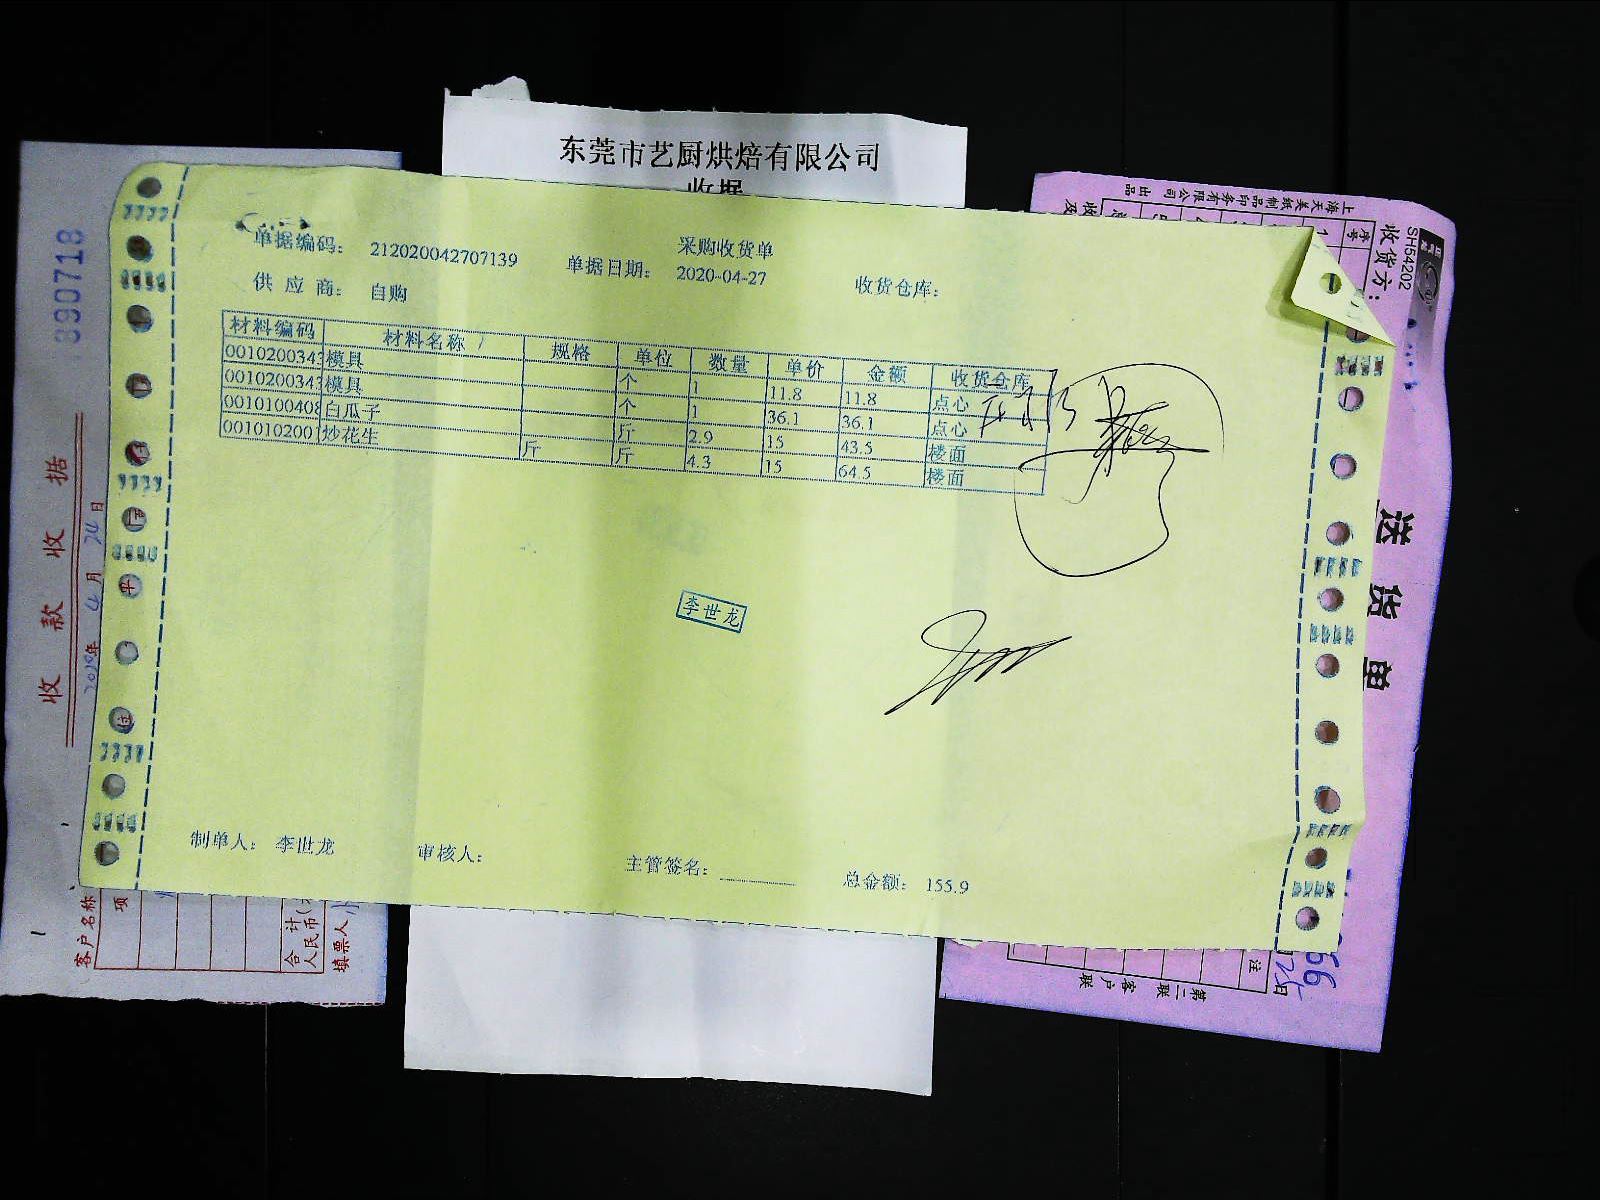 东莞市艺厨烘焙有限公司
收据
采购收货单
单据编码: 212020042707139 单据日期: 2020-04-27 收货仓库:
供应商: 自购
材料编码 材料名称 规格 单位 数量 单价 金额 收货仓库
0010200343 模具 个 1 11.8 11.8 点心
0010200343 模具 个 1 36.1 36.1 点心
0010100408 白瓜子 斤 2.9 15 43.5 楼面
001010200 炒花生 斤 斤 4.3 15 64.5 楼面
李世龙
制单人: 李世龙 审核人: 主管签名: 总金额: 155.9
890718
收款收据
年4月24日
客户名称
项
合计
人民币
填票人
上海天美纸制品印务有限公司 出品
SH54202
收货方:
序号
送货单
注
第二联 客户联